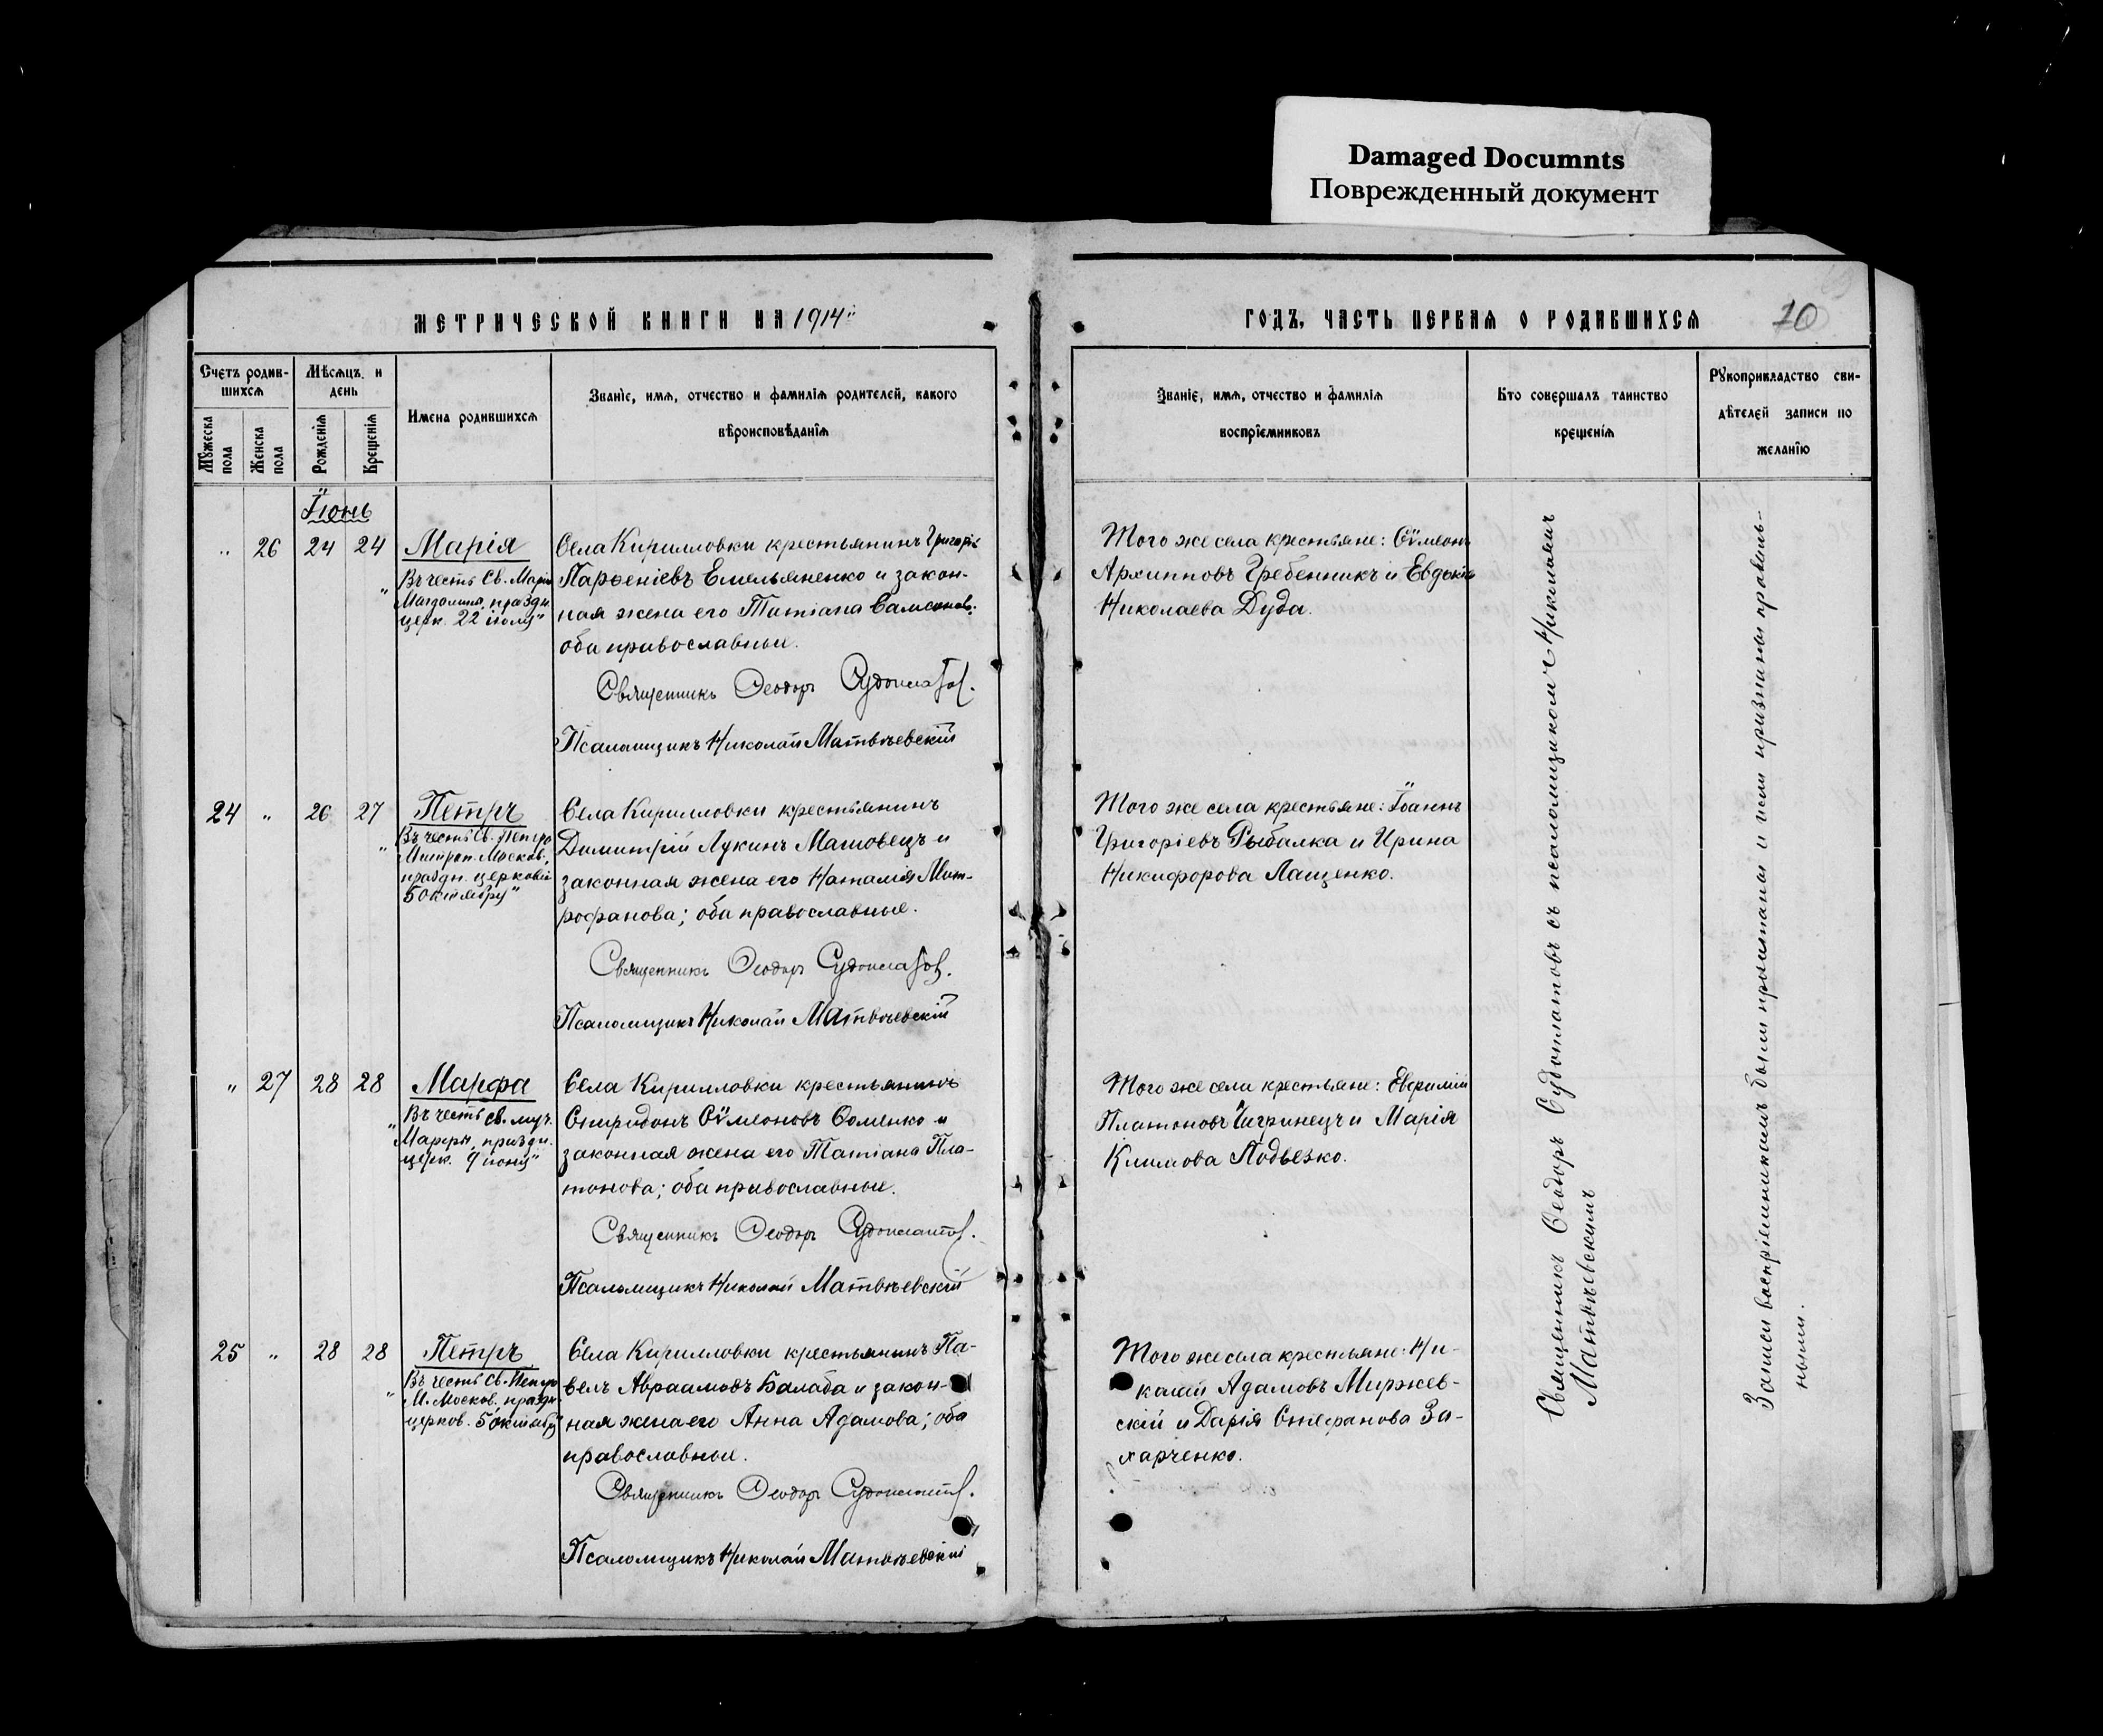 Damaged Documnts
Поврежденный документ
МЕТРИЧЕСКОЙ КНИГИ НА 1914й
ГОДЪ, ЧАСТЬ ПЕРВАЯ О РОДИВШИХСЯ
70
Счетъ родив-
шихся
Мѣсяцъ и
день
Мужеска
пола
Женска
пола
Рожденія
Крещенія
Имена родившихся
Званіе, имя, отчество и фамилія родителей, какого
вѣроисповѣданія
Званіе, имя, отчество и фамилія
воспріемниковъ
Кто совершалъ таинство
крещенія
Рукоприкладство сви-
дѣтелей записи по
желанію
Іюнь
" 26 24 24
Марія
"Въ честь Св. Маріи
Магдалины, праздн.
церк. 22 іюля"
Села Кирилловки крестьянинъ Григорій
Парѳеніевъ Емельяненко и закон-
ная жена его Татіана Самсонов.
оба православные.
Священникъ Ѳеодоръ Судоплатов.
Псаломщикъ Николай Матвѣевскій
Того же села крестьяне: Сѵмеонъ
Архипповъ Гребенникъ и Евдокія
Николаева Дуда.
24 " 26 27
Петръ
"Въ честь Св. Петра
Митроп. Москов.,
праздн. церковію
5 октября"
Села Кирилловки крестьянинъ
Димитрій Лукинъ Маловецъ и
законная жена его Наталія Мит-
рофанова; оба православные.
Священникъ Ѳеодоръ Судоплатов.
Псаломщикъ Николай Матвѣевскій
Того же села крестьяне: Іоаннъ
Григоріевъ Рыбалка и Ирина
Никифорова Лащенко.
" 27 28 28
Марфа
"Въ честь св. муч.
Марфы, праздн.
церк. 9 іюня"
Села Кирилловки крестьянинъ
Спиридонъ Сѵмеоновъ Ѳоменко и
законная жена его Татіана Пла-
тонова; оба православные.
Священникъ Ѳеодоръ Судоплатов.
Псаломщикъ Николай Матвѣевскій
Того же села крестьяне: Евфимій
Платоновъ Чигринецъ и Марія
Климова Подвезко.
25 " 28 28
Петръ
"Въ честь Св. Петра
М. Москов. праздн.
церков. 5 октября"
Села Кирилловки крестьянинъ Па-
велъ Авраамовъ Балаба и закон-
ная жена его Анна Адамова; оба
православные.
Священникъ Ѳеодоръ Судоплатов.
Псаломщикъ Николай Матвѣевскій
Того же села крестьяне: Ни-
колай Адамовъ Миржев-
скій и Дарія Стефанова За-
харченко.
Священникъ Ѳеодоръ Судоплатовъ съ псаломщикомъ Николаемъ
Матвѣевскимъ
Записи воспріемникамъ были прочитаны и ими признаны правиль-
ными.